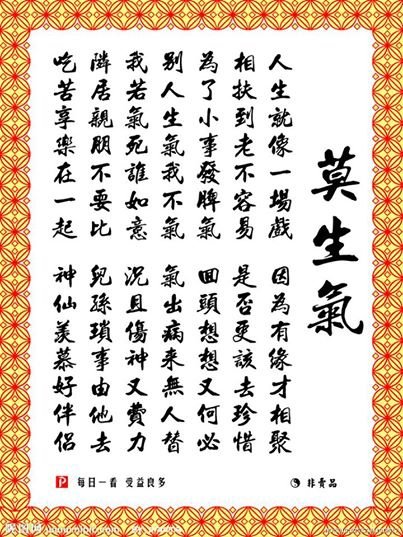 莫生氣
人生就像一場戲 因為有緣才相聚
相扶到老不容易 是否更該去珍惜
為了小事發脾氣 回頭想想又何必
別人生氣我不氣 氣出病來無人替
我若氣死誰如意 況且傷神又費力
隣居親朋不要比 兒孫瑣事由他去
吃苦享樂在一起 神仙羨慕好伴侶
每日一看 受益良多
非賣品